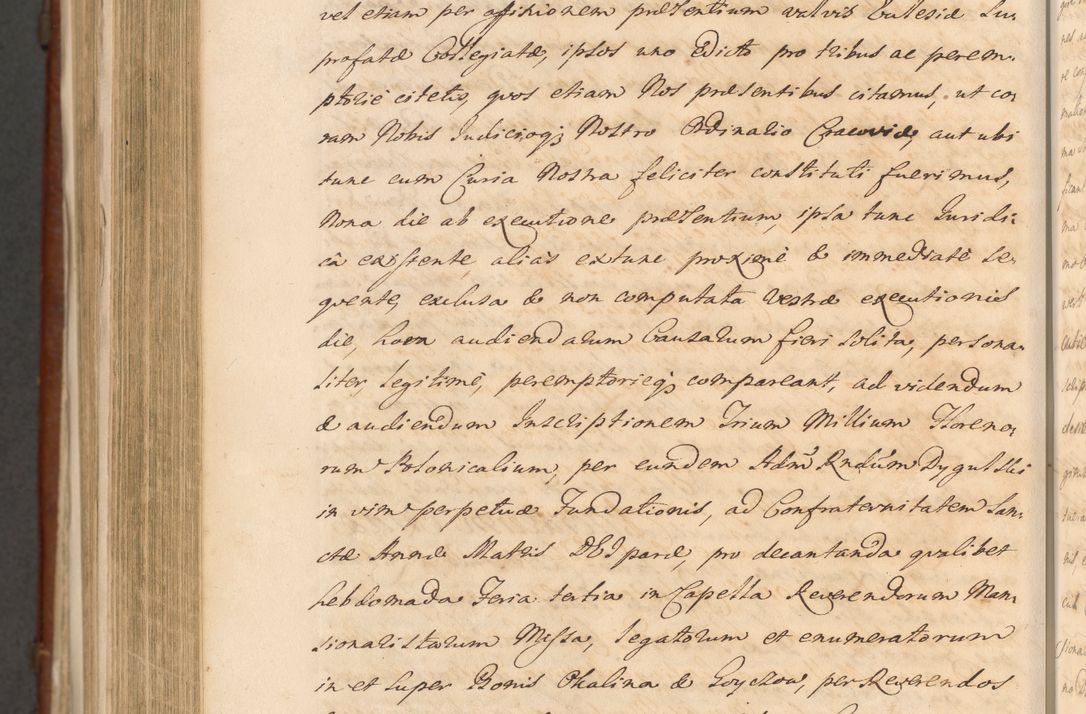 vel etiam per affixionem præsentium valvis Ecclesiæ Su-
profatæ Collegiatæ, ipsos uno Edicto pro tribus ac perem-
ptorie citetis, quos etiam Nos præsentibus citamus, ut co-
ram Nobis Judicioq; Nostro Ordinario Cracoviæ, aut ubi
tunc cum Curia Nostra feliciter constituti fuerimus,
Nona die ab executione præsentium, ipsa tunc Juridi-
câ existente, alias extunc proximè & immediatè se-
quente, exclusa & non computata Vestræ executionis
die, hora audiendarum Causarum fieri solita, persona-
liter, legitimè, peremptorieq; compareant, ad videndum
& audiendum Inscriptionem Trium Millium Floreno-
rum Polonicalium, per eundem Admˢ Rndūm Dygulski
in vim perpetuæ Fundationis, ad Confraternitatem San-
ctæ Annæ Matris DEI paræ, pro decantanda qualibet
hebdomada Feria tertia in Capella Reverendorum Man-
sionaristarum Missa, legatorum et enumeratorum
in et super Bonis Okalina & Goyców, per Reverendos